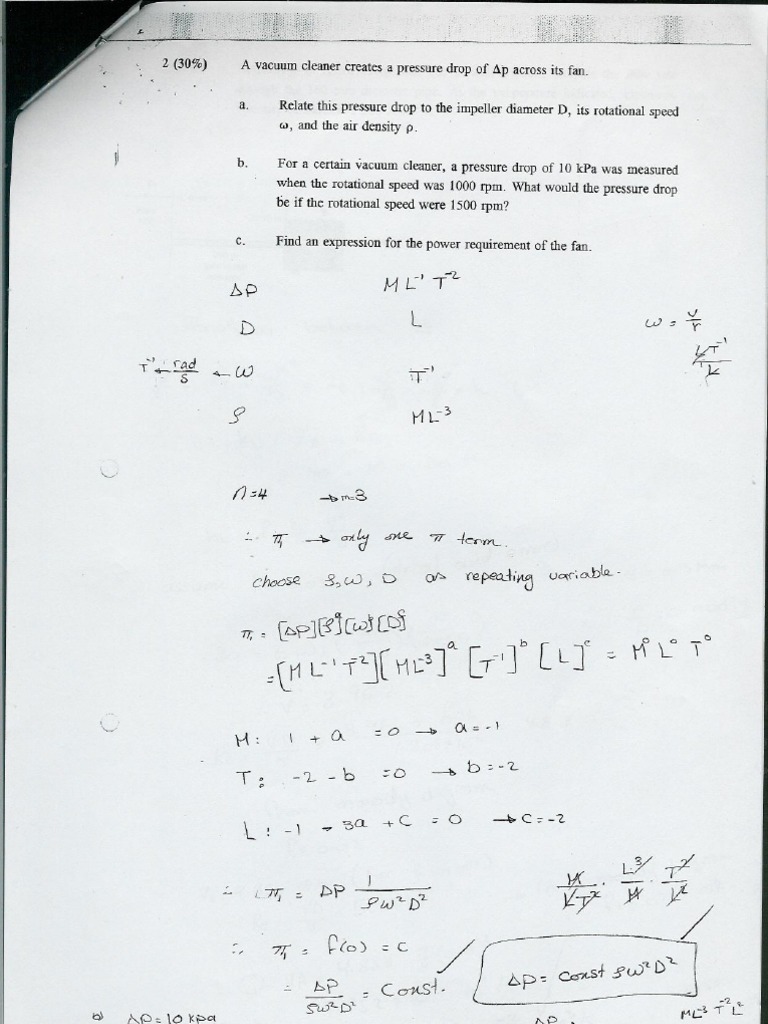 2 (30%) A vacuum cleaner creates a pressure drop of Δp across its fan.
a. Relate this pressure drop to the impeller diameter D, its rotational speed
ω, and the air density ρ.
b. For a certain vacuum cleaner, a pressure drop of 10 kPa was measured
when the rotational speed was 1000 rpm. What would the pressure drop
be if the rotational speed were 1500 rpm?
c. Find an expression for the power requirement of the fan.
ΔP ML⁻¹ T⁻²
D L ω = v/r
T⁻¹ ← rad/s ← ω T⁻¹ LT⁻¹/L
ρ ML⁻³
n=4 → m=3
∴ π₁ → only one π term.
choose ρ, ω, D as repeating variable.
π₁ = [ΔP][ρ]ᵃ[ω]ᵇ[D]ᶜ
= [ML⁻¹T⁻²][ML⁻³]ᵃ [T⁻¹]ᵇ [L]ᶜ = M⁰ L⁰ T⁰
M: 1 + a = 0 → a = -1
T: -2 - b = 0 → b = -2
L: -1 - 3a + c = 0 → c = -2
∴ π₁ = ΔP 1/ρω²D² M/LT² · L³/M · T²/L²
∴ π₁ = f(0) = c
= ΔP/ρω²D² = Const. ΔP = Const ρω²D²
b) ΔP = 10 kpa ΔP ML⁻³ T⁻² L²